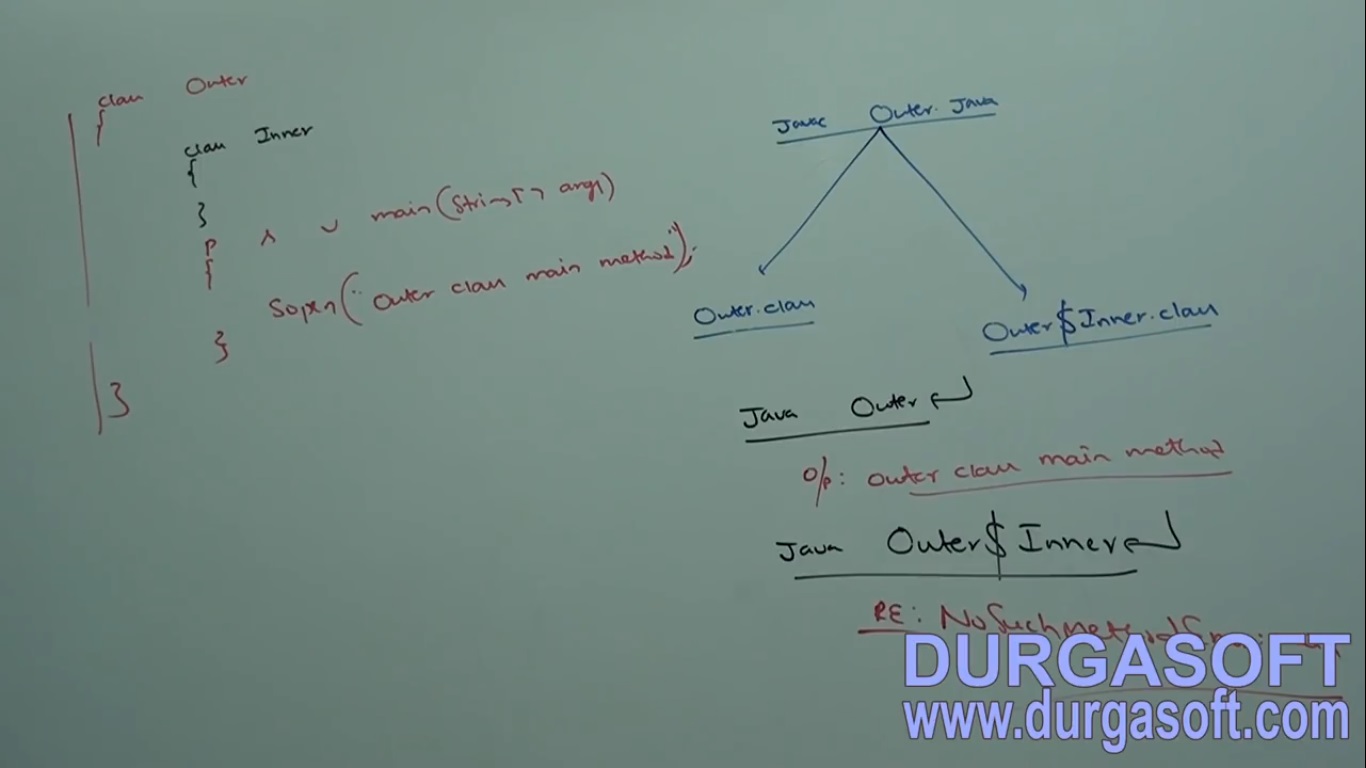 class Outer
{
class Inner
{
}
P s v main(String[] args)
{
Sopln("Outer class main method");
}
}
Javac Outer.Java
Outer.class
Outer$Inner.class
Java Outer↵
O/P: Outer class main method
Java Outer$Inner↵
RE: NoSuchMethodError:
DURGASOFT
www.durgasoft.com